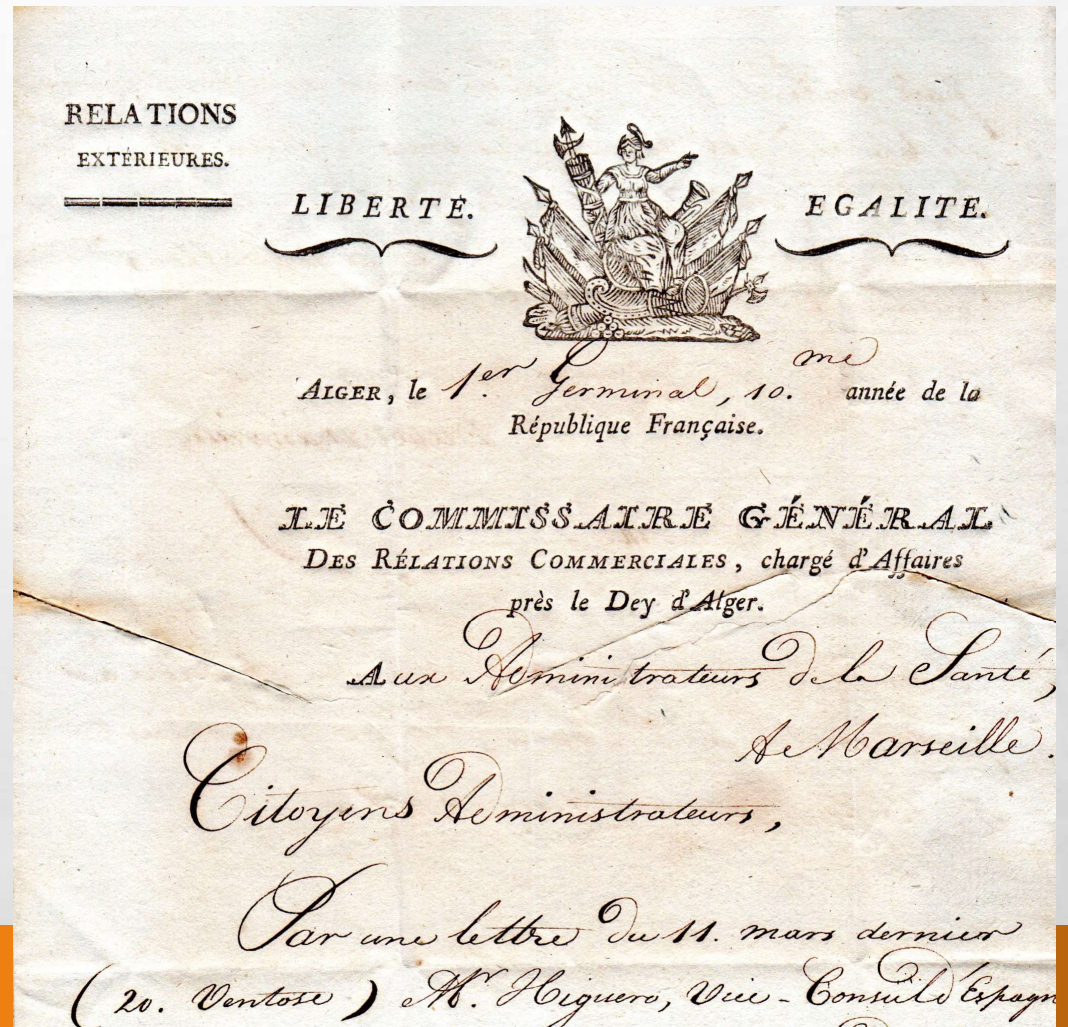 RELATIONS
EXTÉRIEURES.
LIBERTÉ.
EGALITE.
ALGER, le 1er. Germinal, 10.me année de la
République Française.
LE COMMISSAIRE GÉNÉRAL
DES RÉLATIONS COMMERCIALES, chargé d'Affaires
près le Dey d'Alger.
Aux Administrateurs de la Santé,
A Marseille.
Citoyens Administrateurs,
Par une lettre du 11. mars dernier
(20. Ventose) Mr. Higuero, Vice-Consul d'Espagn